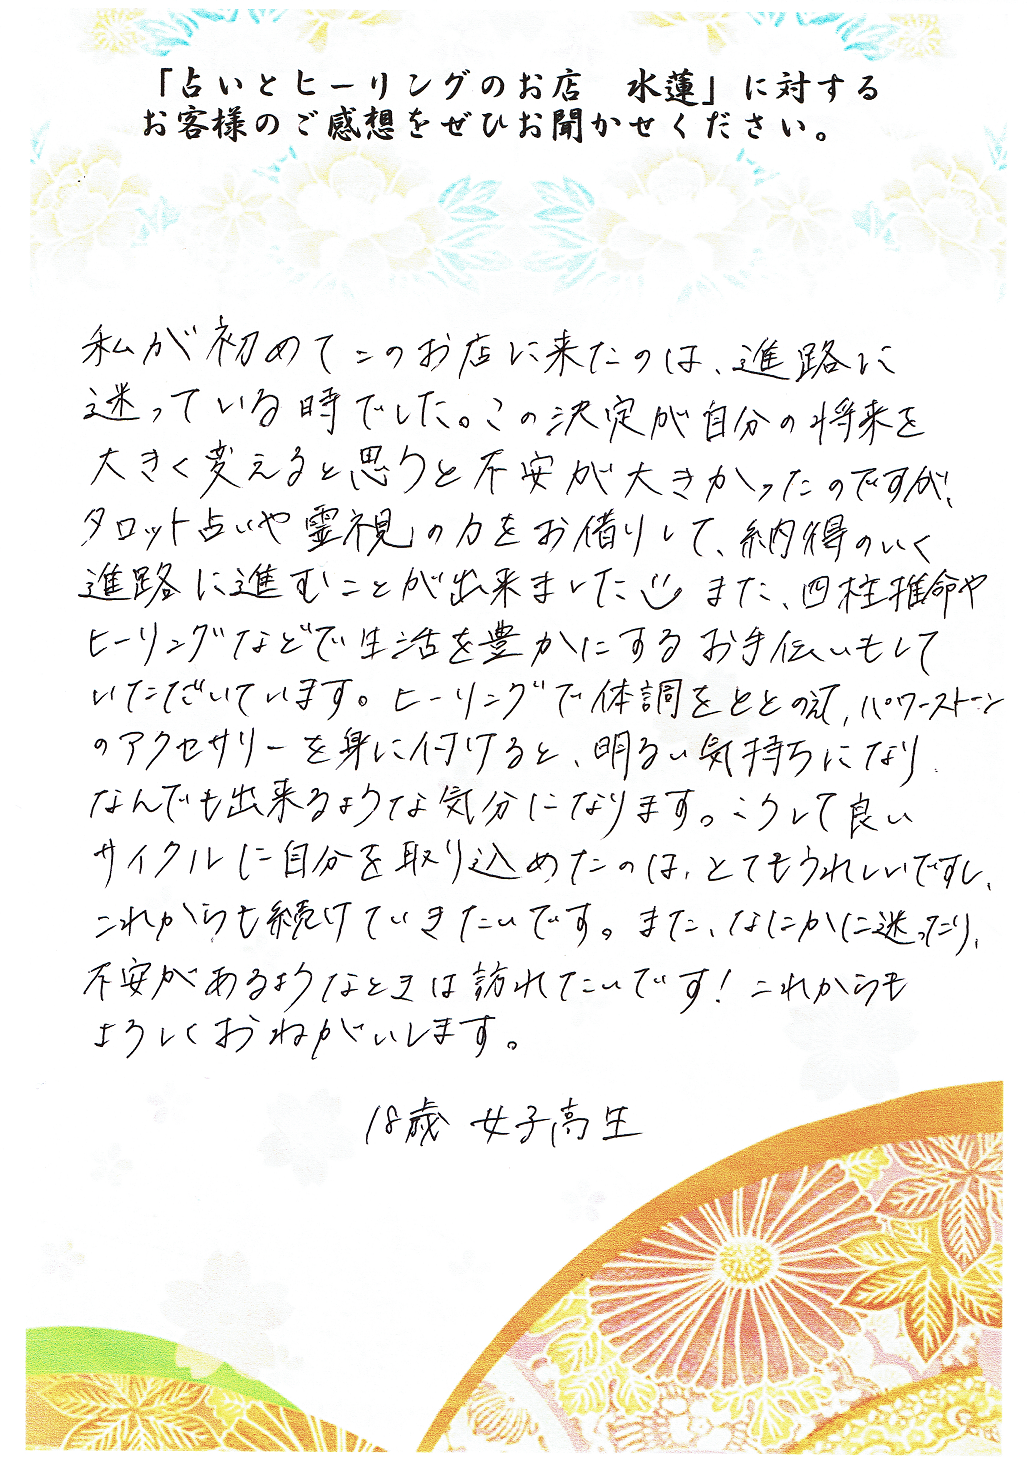 「占いとヒーリングのお店　水蓮」に対する
お客様のご感想をぜひお聞かせください。
私が初めてこのお店に来たのは、進路に
迷っている時でした。この決定が自分の将来を
大きく変えると思うと不安が大きかったのですが、
タロット占いや霊視の力をお借りして、納得のいく
進路に進むことが出来ました また、四柱推命や
ヒーリングなどで生活を豊かにするお手伝いもして
いただいています。ヒーリングで体調をととのえて、パワーストーン
のアクセサリーを身に付けると、明るい気持ちになり
なんでも出来るような気分になります。こうして良い
サイクルに自分を取り込めたのは、とてもうれしいですし、
これからも続けていきたいです。また、なにかに迷ったり、
不安があるようなときは訪れたいです！これからも
よろしくおねがいします。
18歳 女子高生